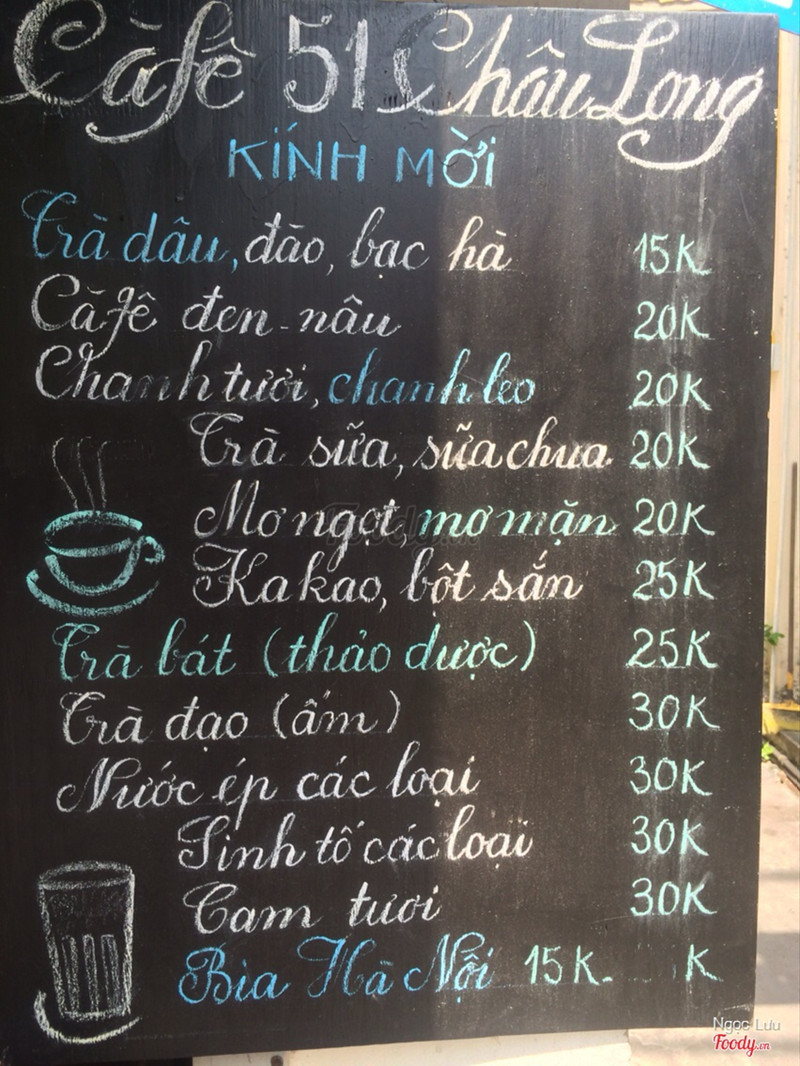 Càfê 51 Châu Long
KÍNH MỜI
Trà dâu, đào, bạc hà 15K
Càfê đen - nâu 20K
Chanh tươi, chanh leo 20K
Trà sữa, sữa chua 20K
Mơ ngọt, mơ mặn 20K
Ka kao, bột sắn 25K
Trà bát (thảo dược) 25K
Trà đạo (ấm) 30K
Nước ép các loại 30K
Sinh tố các loại 30K
Cam tươi 30K
Bia Hà Nội 15K. K
Foody
Ngọc Lưu
Foody.vn